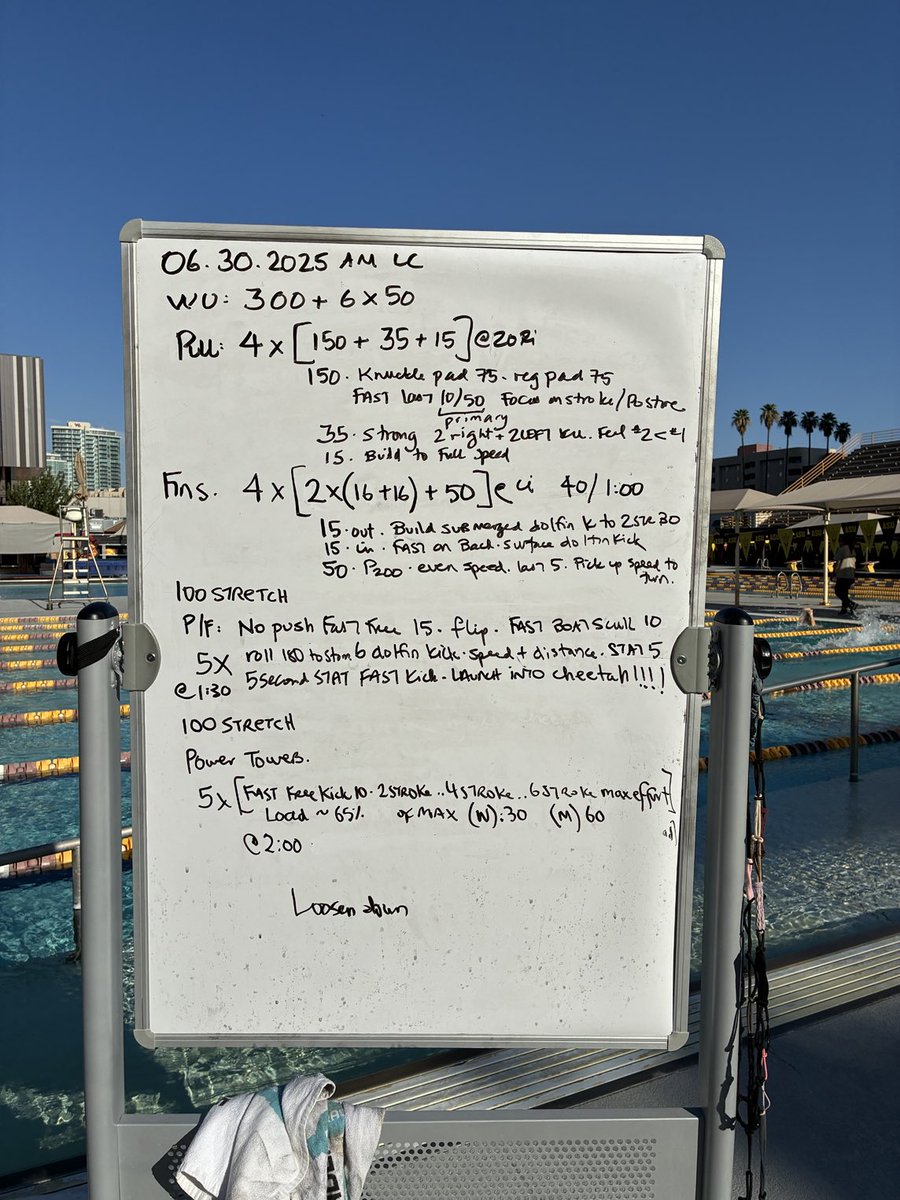 06.30.2025 AM LC
WU: 300 + 6 x 50
Pull: 4 x [150 + 35 + 15] @20Ri
150 · Knuckle pad 75 · reg pad 75
FAST last 10/50 Focus on stroke/Posture
primary
35 · Strong 2 right + 2 LEFT #2 < #1
15 · Build to Full Speed
Fins. 4 x [2 x (16+16) + 50] @ 40/1:00
15 · out · Build submerged dolfin k to 2STR BO
15 · in · FAST on Back · surface dolfin kick
50 · P200 · even speed. last 5 · Pick up speed to
turn.
100 STRETCH
P/F: No push Fast Free 15 · flip · FAST BOAT Scull 10
5X roll 180 to stom 6 dolfin kick · speed + distance · STAT 5
@1:30 5 second STAT FAST Kick · LAUNCH INTO cheetah!!!!
100 STRETCH
Power Towers.
5 x [FAST Free Kick 10 · 2 STROKE .. 4 STROKE .. 6 STROKE max effort]
Load ~ 65% of MAX (W): 30 (M) 60
@2:00
Loosen down
ASU